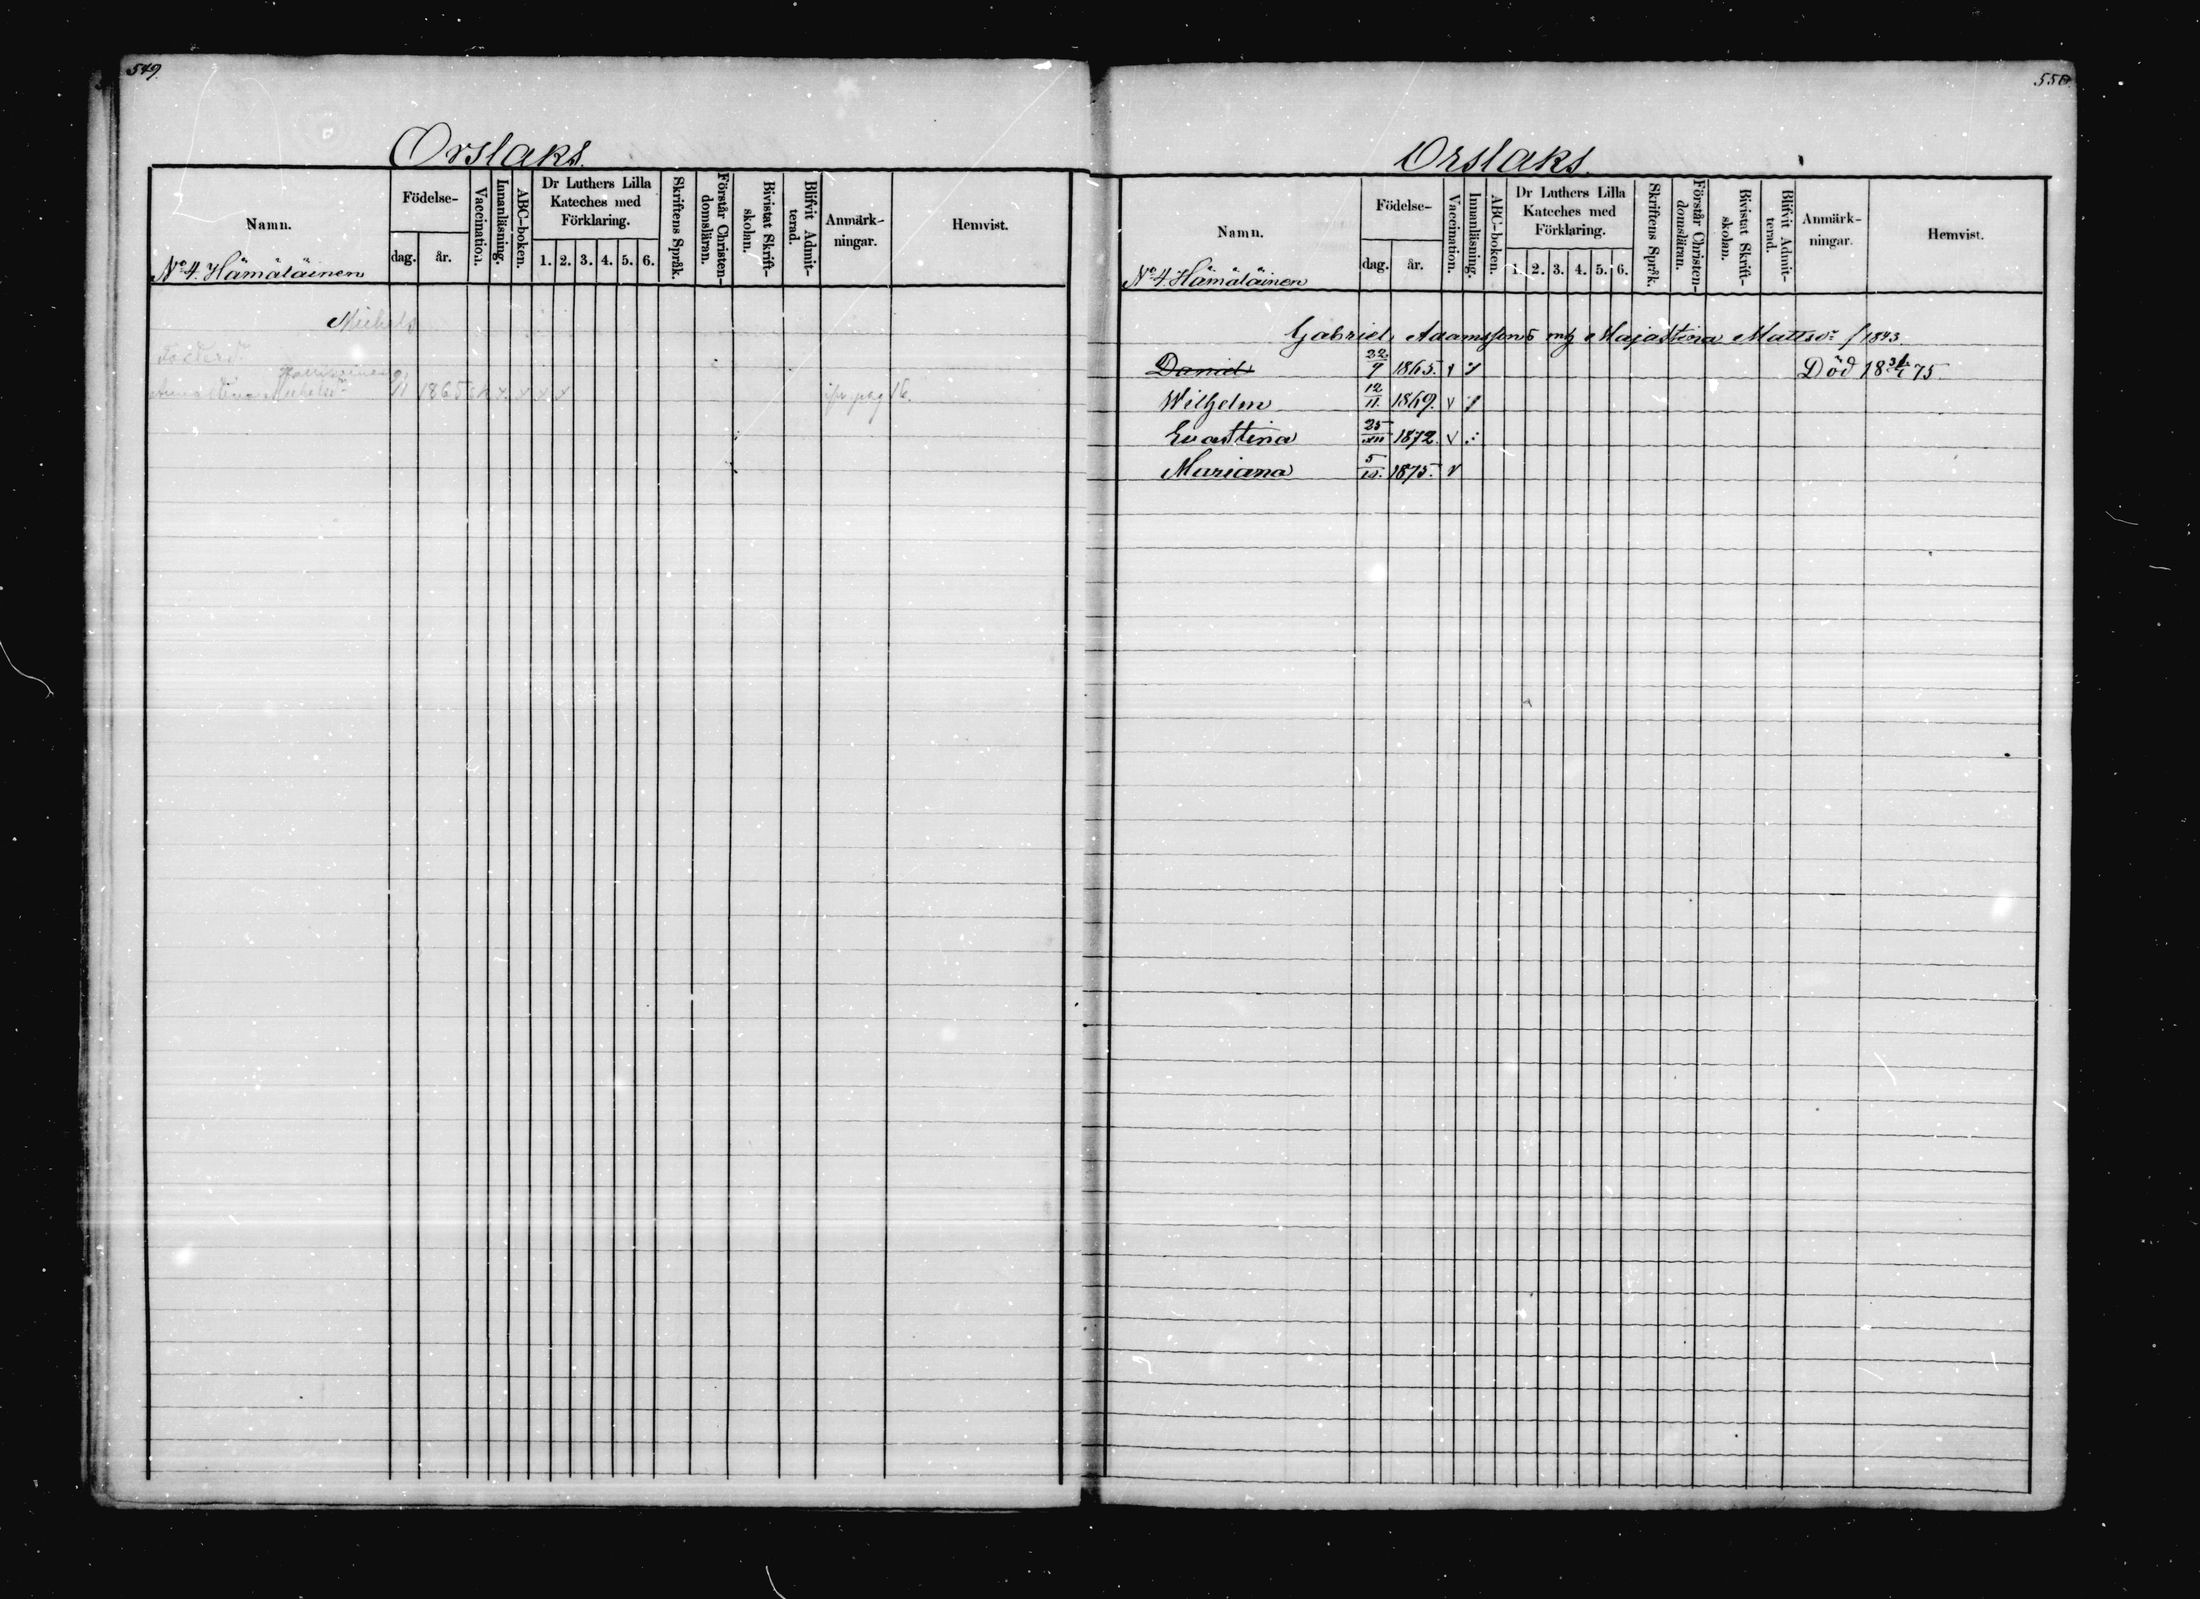 549.
Orslaks.
Namn.
Födelse-
dag.
år.
Vaccination.
Innanläsning.
ABC-boken.
Dr Luthers Lilla
Kateches med
Förklaring.
1. 2. 3. 4. 5. 6.
Skriftens Språk.
Förstår Christen-
domsläran.
Bivistat Skrift-
skolan.
Blifvit Admit-
terad.
Anmärk-
ningar.
Hemvist.
No 4. Hämäläinen
Michels
Foster d.
11 1865
550.
Orslaks.
Namn.
Födelse-
dag.
år.
Vaccination.
Innanläsning.
ABC-boken.
Dr Luthers Lilla
Kateches med
Förklaring.
1. 2. 3. 4. 5. 6.
Skriftens Språk.
Förstår Christen-
domsläran.
Bivistat Skrift-
skolan.
Blifvit Admit-
terad.
Anmärk-
ningar.
Hemvist.
No 4. Hämäläinen
Gabriel Adamssons Majastina Mattsdr f 1843.
Daniel 22/9 1865. Död 75
Wilhelm 12/11. 1869. v
Evastina 25/XII 1872. v
Mariana 1875. v